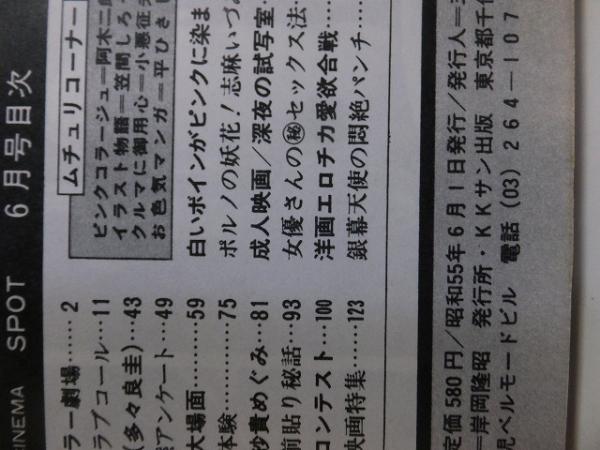 CINEMA SPOT 6月号目次
ムチュリコーナー
ピンクコラージュ=阿木二郎
イラスト物語=笠間しろう
クルマに御用心=小悪征夫
お色気マンガ=平ひさし
白いボインがピンクに染ま
ポルノの妖花！志麻いづみ
成人映画/深夜の試写室
女優さんの㊙セックス法
洋画エロチカ愛欲合戦
銀幕天使の悶絶パンチ
ラー劇場……2
ラブコール…11
(多々良圭)…43
アンケート…49
大場面………59
体験…………75
砂貴めぐみ…81
前貼り秘話…93
コンテスト…100
映画特集……123
定価580円/昭和55年6月1日発行/発行人=
=岸岡隆昭 発行所・KKサン出版 東京都千代
児ベルモードビル 電話(03)264—107